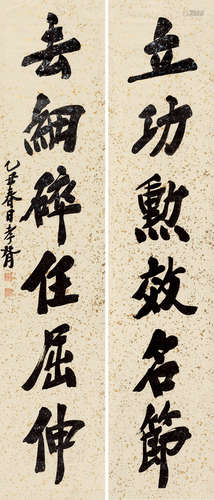 立功勲效名節
去細碎任屈伸
乙丑春日孝胥